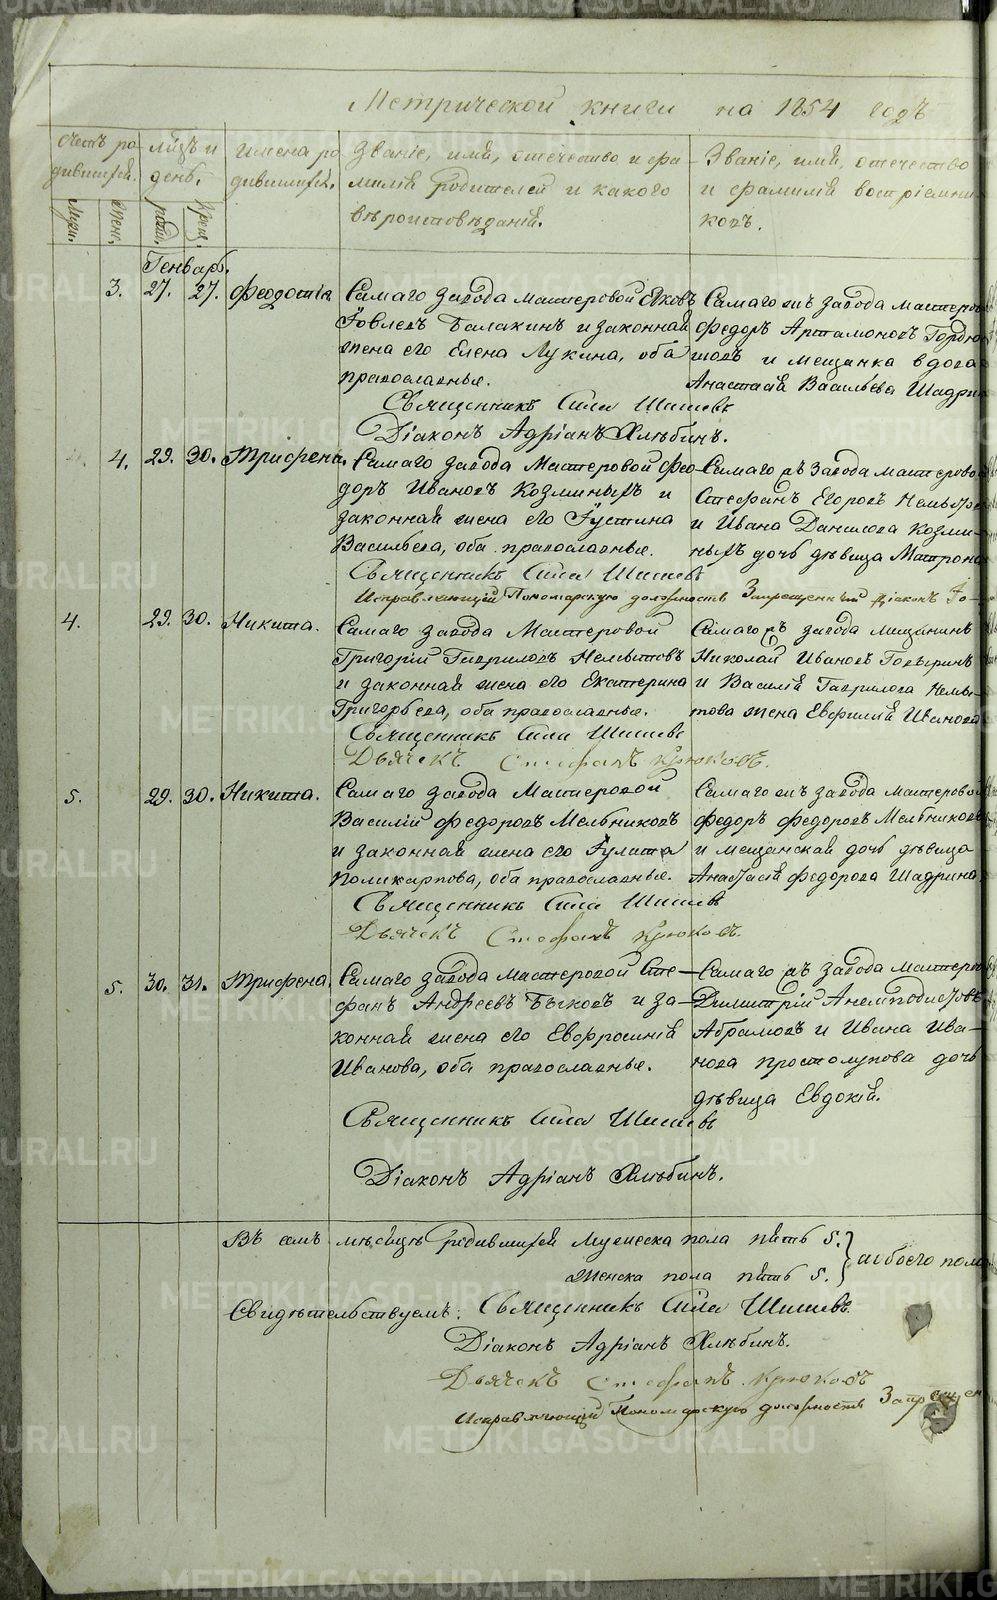 Метрической книги на 1854 годъ
Счетъ родившихся. Мужи. Женс.
Мѣсяцъ и день. рожд. Крещ.
Имена родившихся.
Званіе, имя, отечество и фамилія родителей и какого
вѣроисповѣданія.
Званіе, имя, отечество
и фамилія воспріемни-
ковъ.
Генварь.
3. 27. 27. Феодотія
Самаго завода мастеровой Яковъ
Іовлевъ Балакинъ и законная
жена его Елена Лукина, оба
православные.
Самаго жъ завода мастеров
Федоръ Артамоновъ Гордю
шовъ и мещанка вдова
Анастасія Васильева Шадри
Священникъ Сила Шишевъ
Діаконъ Адріанъ Хлѣбинъ.
4. 29. 30. Трифена.
Самаго завода Мастеровой Фео-
доръ Ивановъ Козминыхъ и
законная жена его Іустина
Васильева, оба православные.
Самаго жъ Завода мастерово
Стефанъ Егоровъ
и Ивана Данилова Козми-
ныхъ дочь дѣвица Матрона
Священникъ Сила Шишевъ
Исправляющій Пономарскую должность Запрещенный Діаконъ
4. 29. 30. Никита.
Самаго завода Мастеровой
Григорій Гавриловъ Немытовъ
и законная жена его Екатерина
Григорьева, оба православные.
Самаго жъ завода мещанинъ
Николай Ивановъ
и Василія Гаврилова Немы-
това жена Евфимія Иванова
Священникъ Сила Шишевъ
Дьячекъ Стефанъ Крюковъ.
5. 29. 30. Никита.
Самаго завода Мастеровой
Василій Федоровъ Мельниковъ
и законная жена его Іулита
Поликарпова, оба православные.
Самаго жъ завода мастеровой
Федоръ Федоровъ Мельниковъ
и мещанская дочь дѣвица
Анастасія Федорова Шадрина
Священникъ Сила Шишевъ
Дьячекъ Стефанъ Крюковъ.
5. 30. 31. Трифена.
Самаго завода мастеровой Сте-
фанъ Андреевъ Бычковъ и за-
конная жена его Евфросинія
Иванова, оба православные.
Самаго жъ завода мастеро
Димитрій Анемподистовъ
Абрамовъ и Ивана Ива-
нова Простолупова дочь
дѣвица Евдокія.
Священникъ Сила Шишевъ
Діаконъ Адріанъ Хлѣбинъ.
Въ семъ мѣсяцѣ родившихся Мужеска пола пять 5.
Женска пола пять 5.
обоего пола
Свидѣтельствуемъ: Священникъ Сила Шишевъ.
Діаконъ Адріанъ Хлѣбинъ.
Дьячекъ Стефанъ Крюковъ
Исправляющій Пономарскую должность Запрещен
METRIKI.GASO-URAL.RU